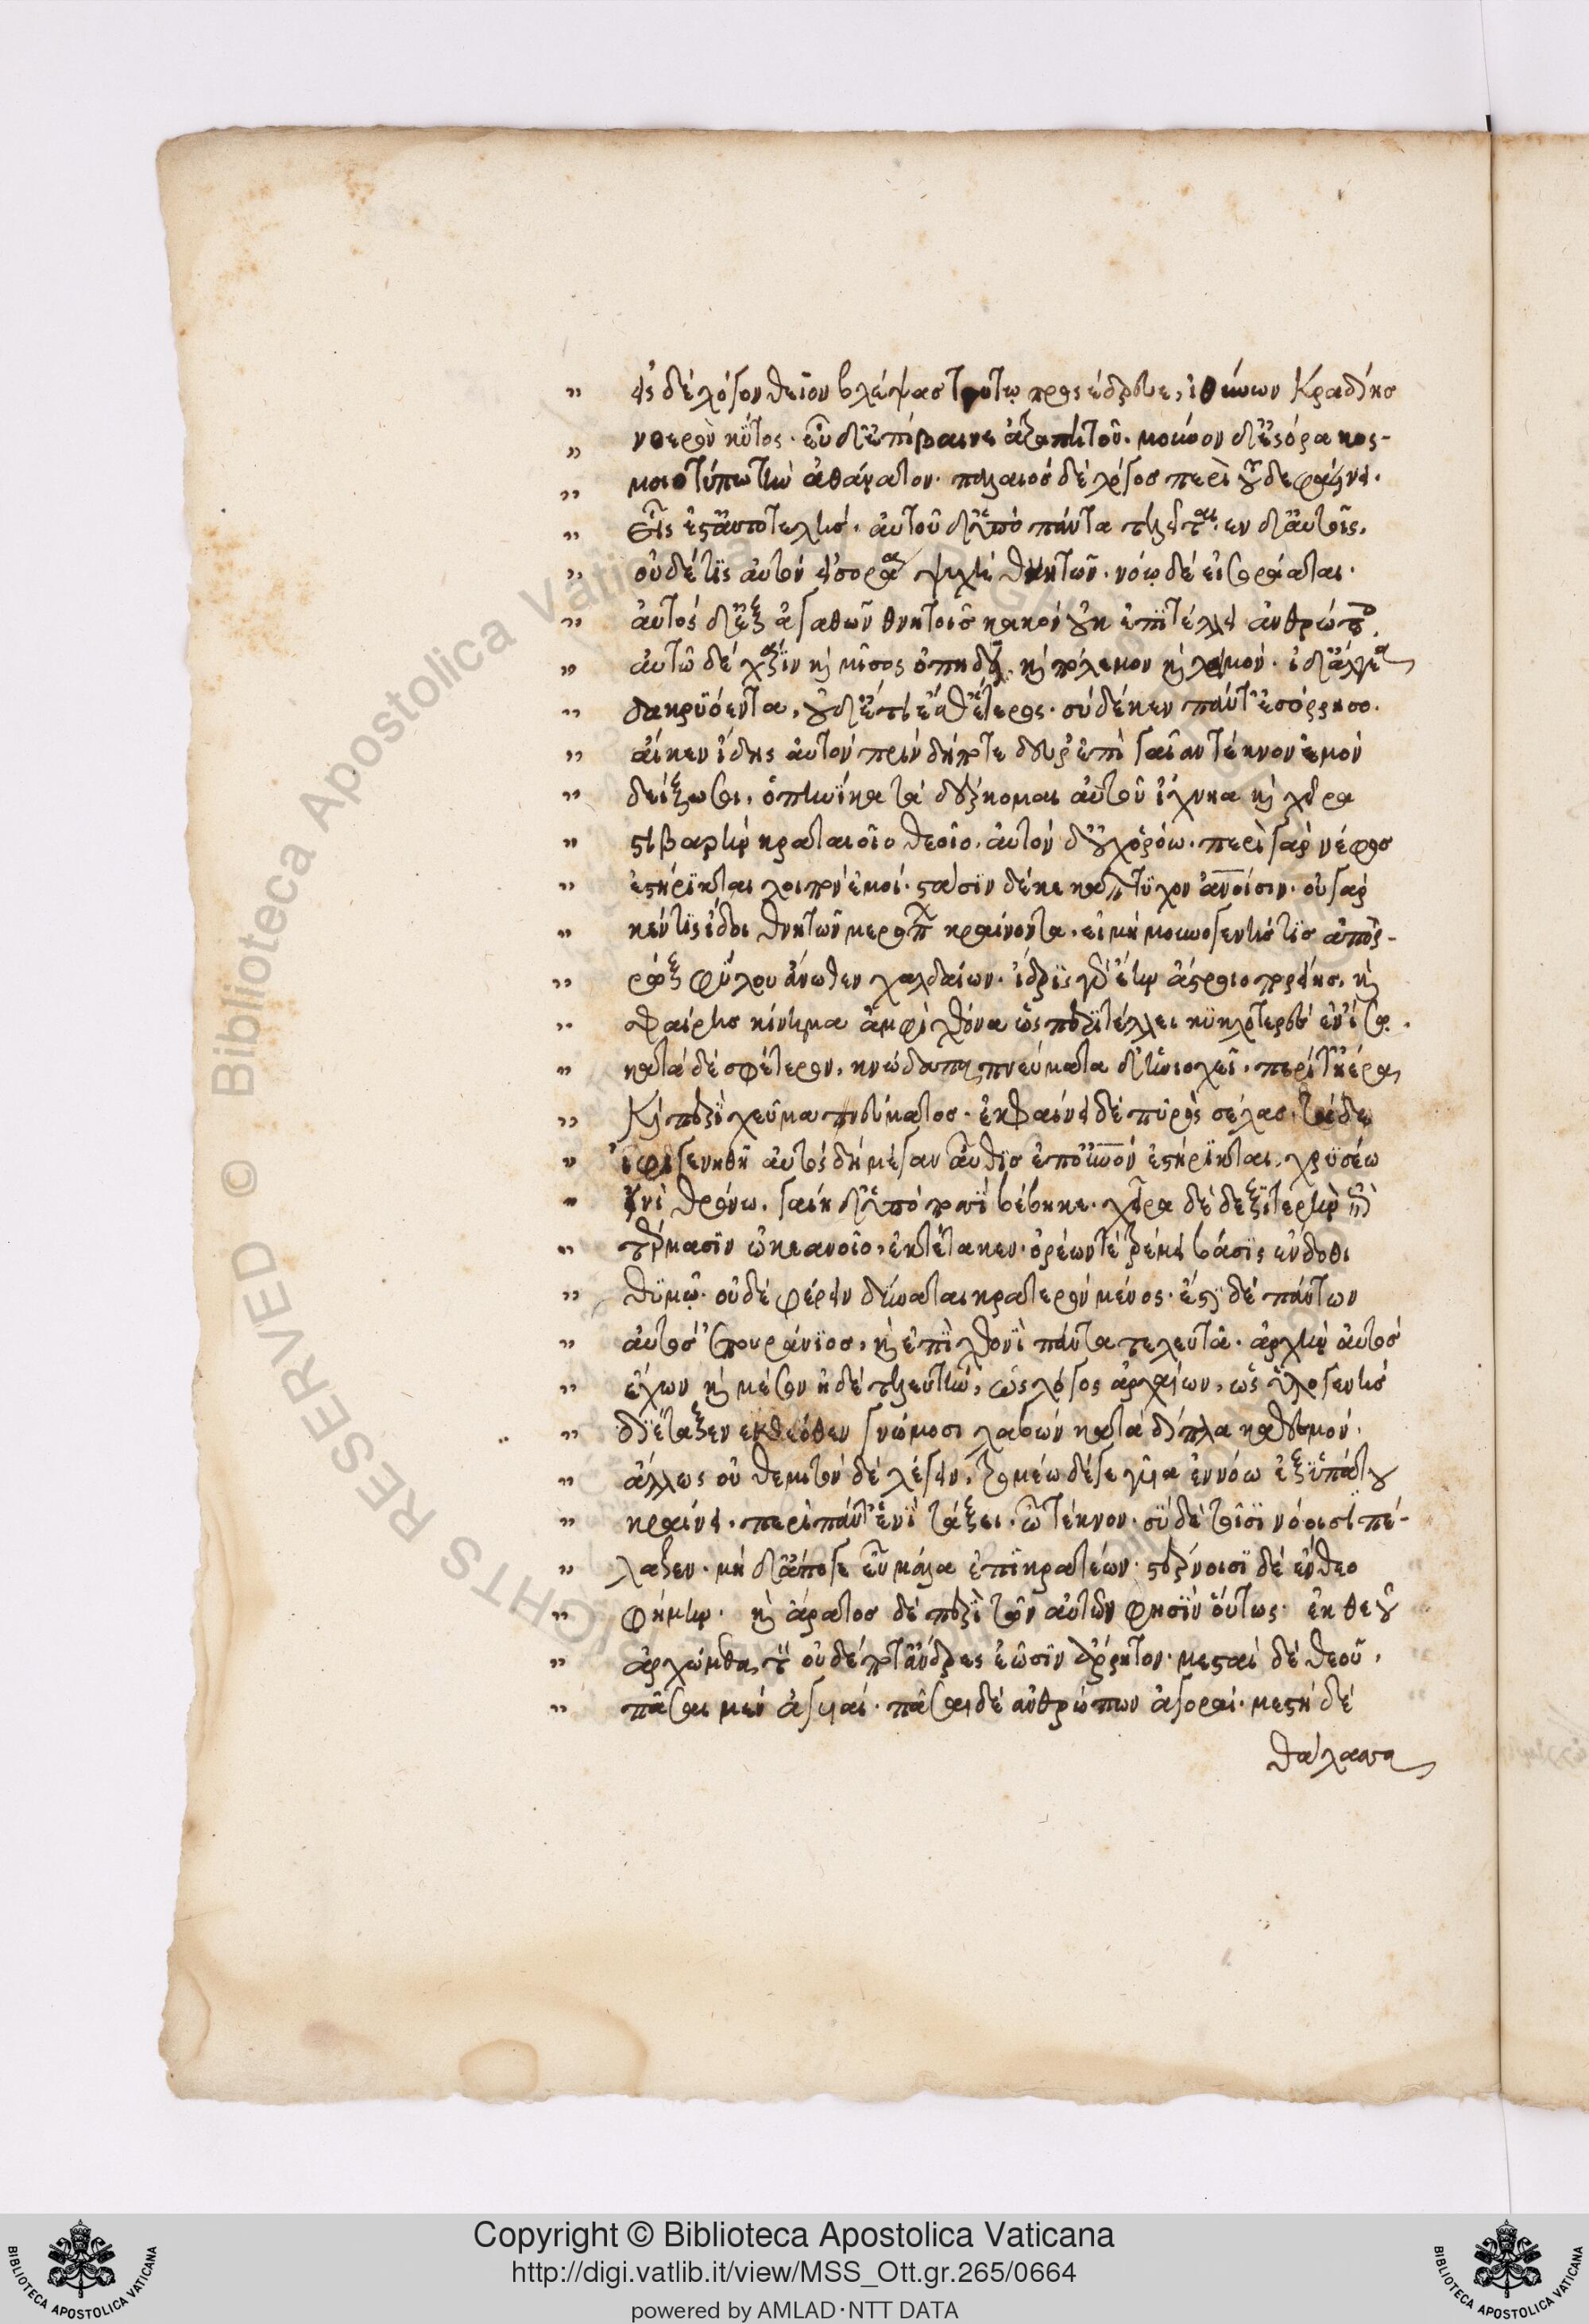 εἰς δὲ λόγον θεῖον βλέψας τούτῳ προςέδρευε, ἰθύνων κραδίης
νοερὸν κύτος. εὖ δ' ἐπίβαινε ἀτραπιτοῦ. μοῦνον δ' ἐσόρα κοσ-
μοιο τυπωτὴν ἀθάνατον. παλαιὸς δὲ λόγος περὶ τοῦδε φαείνει.
εἷς ἔστ' αὐτοτελής. αὐτοῦ δ' ὕπο πάντα τελεῖται. ἐν δ' αὐτοῖς
οὐδέ τις αὐτὸν εἰσοράαι ψυχὴ θνητῶν. νόῳ δὲ εἰσοράαται.
αὐτὸς δ' ἐξ ἀγαθῶν θνητοῖς κακὸν οὐκ ἐπιτέλλει ἀνθρώποις.
αὐτῷ δὲ χάρις καὶ μῖσος ὀπηδεῖ, καὶ πόλεμον καὶ λοιμὸν. ἰδ' ἄλγεα
δακρυόεντα, οὐδέ τις ἔσθ' ἕτερος. σὺ δέ κεν πάντ' ἐσόρησο.
αἴ κεν ἴδῃς αὐτὸν πρὶν δή ποτε δεῦρ' ἐπὶ γαῖαν τέκνον ἐμὸν
δείξω σοι, ὁπηνίκα τὰ δέρκομαι αὐτοῦ ἴχνια καὶ χεῖρα
στιβαρὴν κραταιοῖο θεοῖο. αὐτὸν δ' οὐχ ὁρόω. περὶ γὰρ νέφος
ἐστήρικται λοιπὸν ἐμοί. στᾶσιν δέ καὶ ἀνοίσιν. οὐ γάρ
κέν τις ἴδοι θνητῶν μερόπων κραίνοντα, εἰ μὴ μουνογενής τις ἀποῤ-
ρὼξ φύλου ἄνωθεν χαλδαίων. ἴδρις γὰρ ἔην ἄστροιο πορείης, καὶ
σφαίρης κίνημα ἀμφὶ χθόνα ὡς περιτέλλει κυκλοτερὲς ἐν ἴσῳ.
κατὰ δὲ σφέτερον, κνώδακα πνεύματα δ' ἡνιοχεῖ. περί τ' ἠέρα
καὶ περὶ χεῦμα πνεύματος. ἐκφαίνει δὲ πυρὸς σέλας
ἰφιγενήτη αὐτὸς δὴ μέγαν αὖθις ἐπ' οὐρανὸν ἐστήρικται, χρυσέῳ
ἐνὶ θρόνῳ. γαίη δ' ὑπὸ ποσσὶ βέβηκε. χεῖρα δὲ δεξιτερὴν ἐπὶ
τέρμασιν ὠκεανοῖο, ἐκτέτακεν. ὀρέων δὲ τρέμει βάσις ἔνδοθι
θυμῷ. οὐδὲ φέρειν δύναται κρατερὸν μένος. ἔστι δὲ πάντων
αὐτὸς ἐπουράνιος, καὶ ἐπὶ χθονὶ πάντα τελευτᾷ. ἀρχὴν αὐτὸς
ἔχων καὶ μέσον ἠδὲ τελευτήν, ὡς λόγος ἀρχαίων, ὡς ὑλογενὴς
διέταξεν ἐκ θεόθεν γνώμοσι λαβὼν κατὰ δίπλα κα θεσμόν.
ἄλλως οὐ θεμιτὸν δὲ λέγειν, τρομέω δέ γε γυῖα ἐν νόῳ ἐξ ὑπάτου
κραίνει. περὶ πάντ' ἐνὶ τάξει. ὦ τέκνον. σὺ δὲ τοῖσι νόοισι πέ-
λαζευ. μὴ δ' ἀπόγε εὖ μάλα ἐπικρατέων. στέρνοισι δὲ ἔνθεο
φήμην. καὶ ἄρατος δὲ περὶ τῶν αὐτῶν φησὶν οὕτως. ἐκ θεοῦ
ἀρχώμεθα, τὸν οὐδέποτ' ἄνδρες ἐῶσιν ἄρρητον. μεσταὶ δὲ θεοῦ,
πᾶσαι μὲν ἀγυιαί. πᾶσαι δὲ ἀνθρώπων ἀγοραί. μεστὴ δὲ
θάλασσα
Copyright © Biblioteca Apostolica Vaticana
http://digi.vatlib.it/view/MSS_Ott.gr.265/0664
powered by AMLAD·NTT DATA